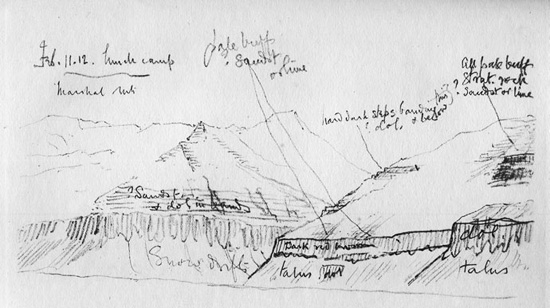 Feb. 11.12. Lunch camp
Marshal Mts
pale buff
? Sandst
or lime
All pale buff
Strat. rock
? Sandst or lime
hard dark steps
? dol. & below
? Sandst
& dol in bands
Snow drifts
Dark red
talus dol
dol
talus